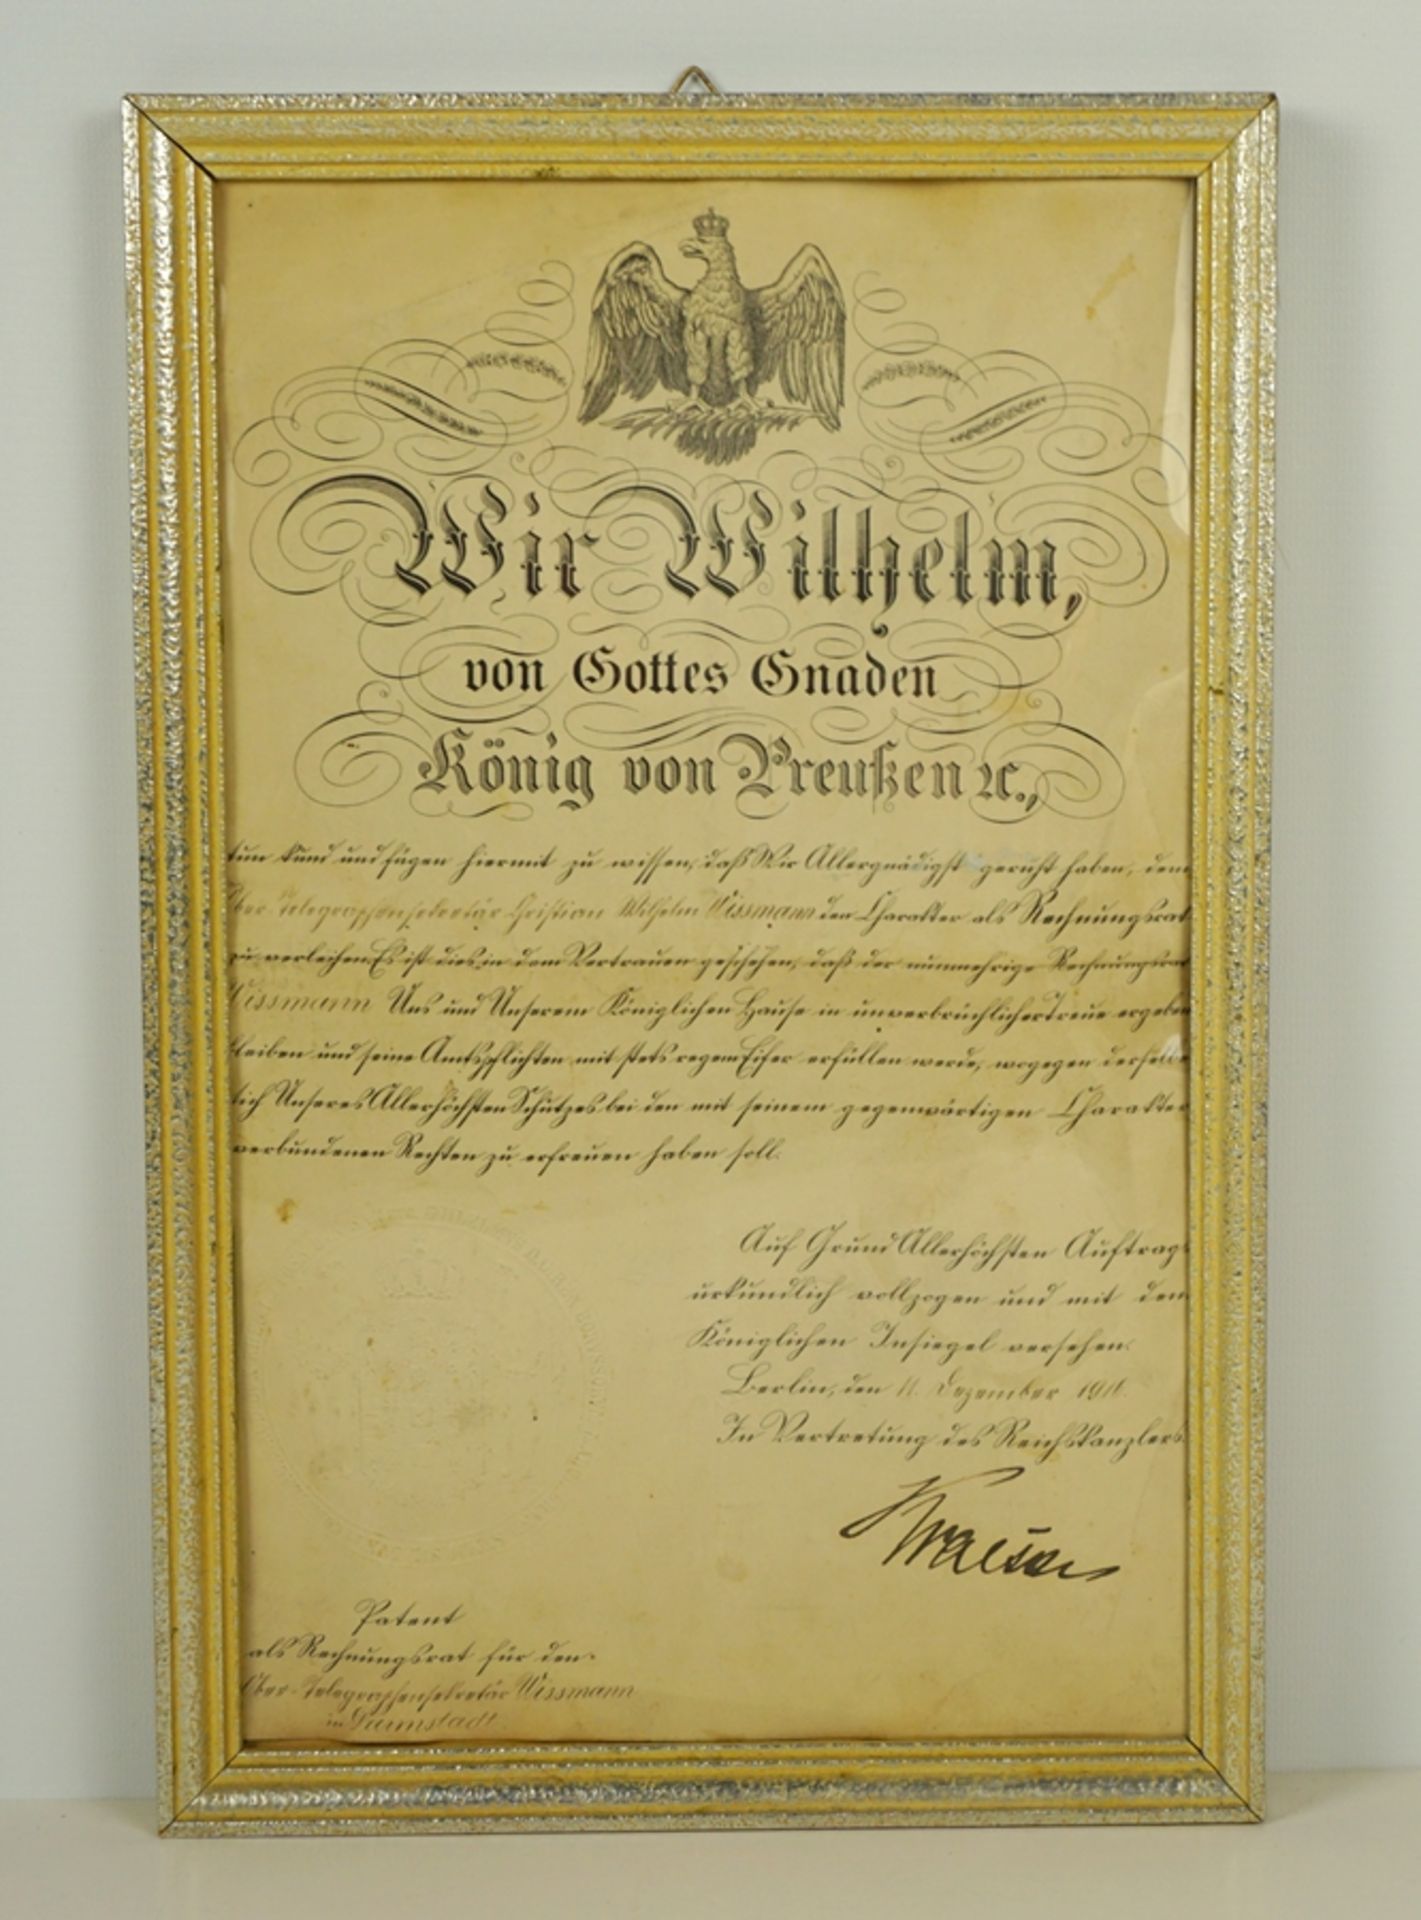 Wir Wilhelm,
von Gottes Gnaden
König von Preußen ꝛc.,
tun kund und fügen hiermit zu wissen, daß Wir Allergnädigst geruht haben, dem
Ober-Telegraphensekretär Christian Wilhelm Wissmann den Charakter als Rechnungsrat
zu verleihen. Es ist dies in dem Vertrauen geschehen, daß der nunmehrige Rechnungsrat
Wissmann Uns und Unserem Königlichen Hause in unverbrüchlicher Treue ergeben
bleiben und seine Amtspflichten mit stets regem Eifer erfüllen werde, wogegen derselbe
sich Unseres Allerhöchsten Schutzes bei den mit seinem gegenwärtigen Charakter
verbundenen Rechten zu erfreuen haben soll.
Auf Grund Allerhöchsten Auftrags
urkundlich vollzogen und mit dem
Königlichen Insiegel versehen.
Berlin, den 11. Dezember
In Vertretung des Reichskanzlers
Patent
als Rechnungsrat für den
Ober-Telegraphensekretär Wissmann
in Darmstadt.